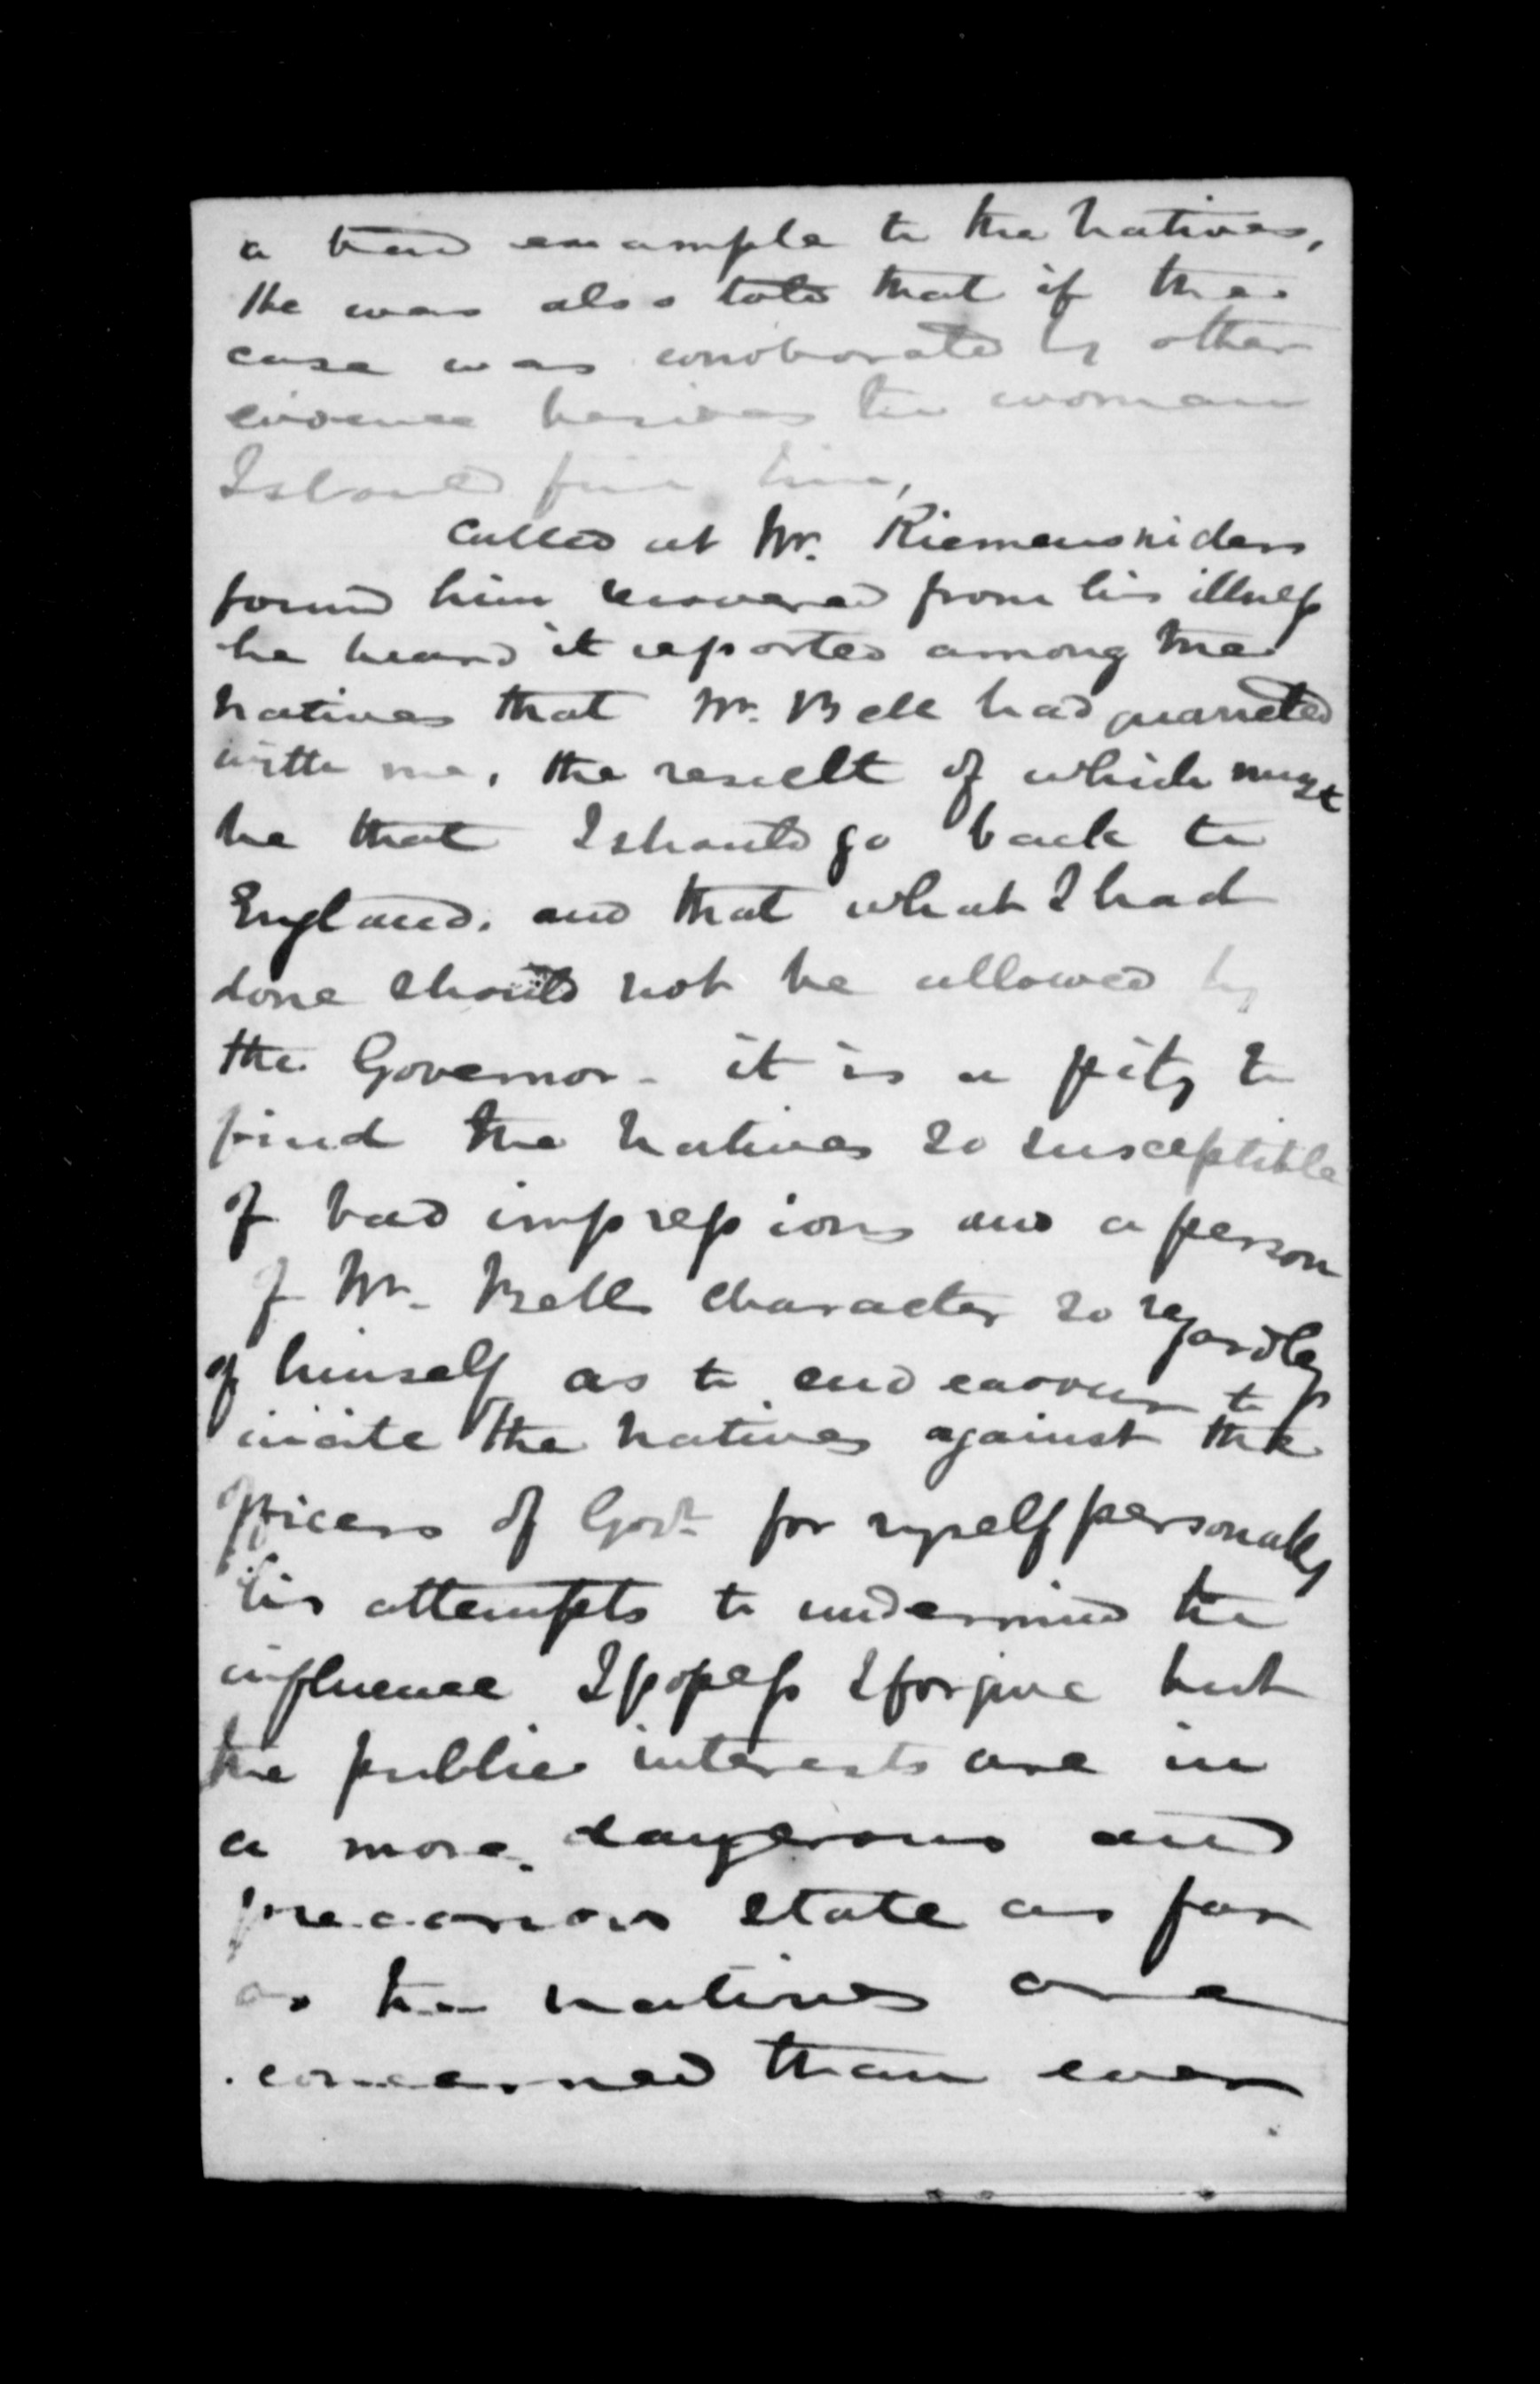 a bad example to the Natives,
He was also told that if the
case was corroborated by other
evidence besides the woman
I should fine him,
Called at Mr. Riemensniders
found him recovered from his illness
he heard it reported among the
Natives that Mr. Bell had quarreled
with me, the result of which must
be that I should go back to
England, and that what I had
done should not be allowed by
the Governor - it is a pity to
find the Natives so susceptible
of bad impressions and a person
of Mr. Bells character so regardless
of himself as to endeavour to
incite the Natives against the
Officers of Govt. for myself personally
his attempts to undermine the
influence I possess I forgive but
the public interests are in
a more dangerous and
precarious state as far
as the natives are
concerned than ever